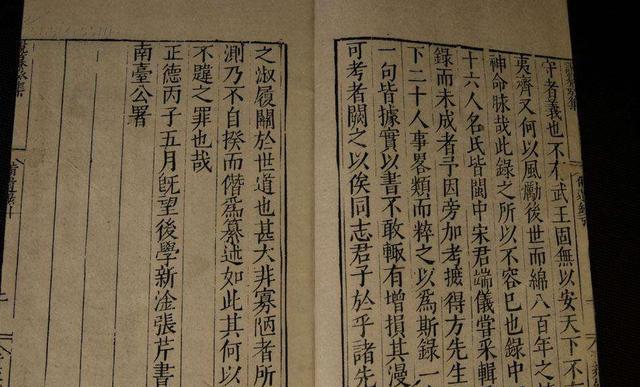 守者義也不有武王固無以安天下不有
夷齊又何以風勵後世而綿八百年之
神命脉哉此錄之所以不容已也錄中
十六人名氏皆閩中宋君端儀嘗采輯
錄而未成者予因旁加考摭得方先生
下二十人事畧類而粹之以為斯錄一
一句皆據實以書不敢輙有增損其漫
可考者闕之以俟同志君子於乎諸先
之淑履關於世道也甚大非寡陋者所
測乃不自揆而僭為纂述如此其何以
不韙之罪也哉
正德丙子五月旣望後學新淦張芹書
南臺公署